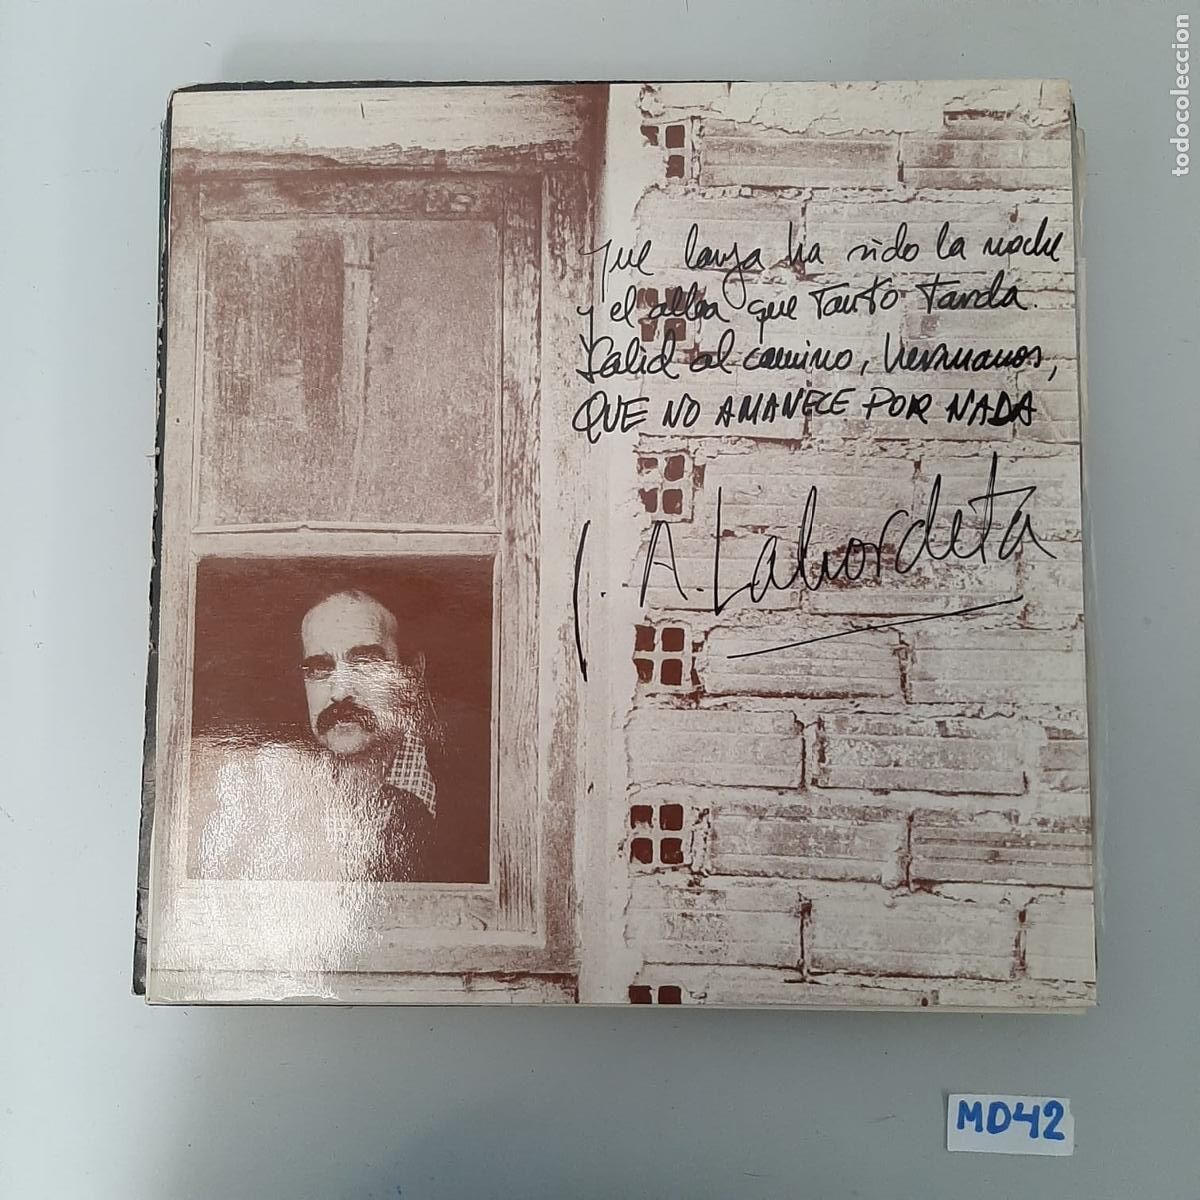 que larga ha sido la noche
y el alba que tanto tarda.
Salid al camino, hermanos,
QUE NO AMANECE POR NADA
J. A. Labordeta
MD42
todocoleccion